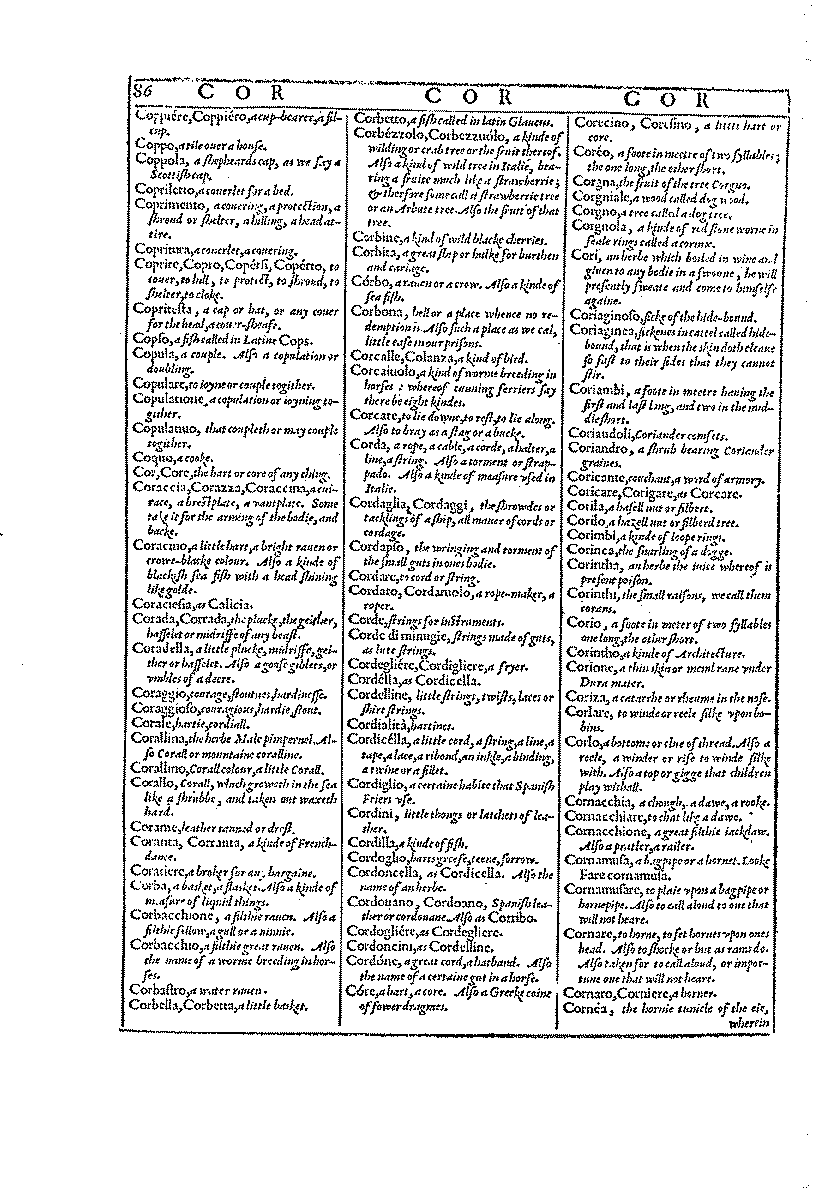 86 COR COR COR
Coppiére, Coppiéro, a cup-bearer, a fil-
cup.
Coppo, a tile ouer a house.
Coppola, a shepheards cap, as we say a
Scottish cap.
Copriletto, a couerlet for a bed.
Coprimento, a couering, a protection, a
shroud or shelter, a hilling, a head at-
tire.
Copritura, a couerlet, a couering.
Coprire, Copro, Copérsi, Copérto, to
couer, to hill, to protect, to shroud, to
shelter, to cloke.
Copritesta, a cap or hat, or any couer
for the head, a couer-sheafe.
Copso, a fish called in Latine Cops.
Copula, a couple. Also a copulation or
doubling.
Copulare, to ioyne or couple togither.
Copulatione, a copulation or ioyning to-
gither.
Copulatiuo, that coupleth or may couple
togither.
Coquo, a cooke.
Cor, Core, the hart or core of any thing.
Coraccia, Corazza, Coraccina, a cui-
race, a brestplate, a vantplate. Some
take it for the arming of the bodie, and
backe.
Coracino, a little hart, a bright rauen or
crowe-blacke colour. Also a kinde of
blackish sea fish with a head shining
like golde.
Coraciesia, as Calicia.
Corada, Corrada, the plucke, the geither,
hasselet or midriffe of any beast.
Coradella, a little plucke, midriffe, gei-
ther or hasselet. Also a goose giblets, or
vmbles of a deere.
Coraggio, courage, stoutnes, hardinesse.
Coraggioso, couragious, hardie, stout.
Corale, hartie, cordiall.
Corallina, the herbe Male pimpernel. Al-
so Corall or mountaine coralline.
Corallino, Corall colour, a little Corall.
Corallo, Corall, which groweth in the sea
like a shrubbe, and taken out waxeth
hard.
Corame, leather tanned or drest.
Coranta, Corranta, a kinde of French-
dance.
Coratiere, a broker for any bargaine.
Corba, a basket, a flasket. Also a kinde of
measure of liquid things.
Corbacchione, a filthie rauen. Also a
filthie fellow, a gull or a ninnie.
Corbacchio, a filthie great rauen. Also
the name of a worme breeding in hor-
ses.
Corbastro, a water rauen.
Corbella, Corbetta, a little basket.
Corbetto, a fish called in latin Glaucus.
Corbézzolo, Corbezzuólo, a kinde of
wilding or crab tree or the fruit thereof.
Also a kind of wild tree in Italie, bea-
ring a fruite much like a strawberrie;
& therefore some call it strawberrie tree
or an Arbute tree. Also the fruit of that
tree.
Corbine, a kind of wild blacke cherries.
Corbita, a great ship or hulke for burthen
and cariage.
Córbo, a rauen or a crow. Also a kinde of
sea fish.
Corbona, hell or a place whence no re-
demption is. Also such a place as we cal,
little ease in our prisons.
Corcalle, Colanza, a kind of bird.
Corcaiuolo, a kind of worme breeding in
horses: whereof cunning ferriers say
there be eight kindes.
Corcare, to lie downe, to rest, to lie along.
Also to bray as a stag or a bucke.
Corda, a rope, a cable, a corde, a halter, a
line, a string. Also a torment or strap-
pado. Also a kinde of measure vsed in
Italie.
Cordaglia, Cordaggi, the shrowdes or
tacklings of a ship, all maner of cords or
cordage.
Cordapso, the wringing and torment of
the small guts in ones bodie.
Cordare, to cord or string.
Cordaro, Cordaruolo, a rope-maker, a
roper.
Corde, strings for instruments.
Corde di minugie, strings made of guts,
as lute strings.
Cordegliére, Cordigliere, a fryer.
Cordélla, as Cordicella.
Cordelline, little strings, twists, laces or
shirt strings.
Cordialità, hartines.
Cordicélla, a little cord, a string, a line, a
tape, a lace, a ribond, an inkle, a binding,
a twine or a fillet.
Cordiglio, a certaine habite that Spanish
Friers vse.
Cordini, little thongs or latchets of lea-
ther.
Cordilla, a kinde of fish.
Cordoglio, harts greefe, teene, sorrow.
Cordoncella, as Cordicella. Also the
name of an herbe.
Cordouano, Cordoano, Spanish lea-
ther or cordouane. Also as Corribo.
Cordogliére, as Cordegliere.
Cordoncini, as Cordelline.
Cordóne, a great cord, a hatband. Also
the name of a certaine gut in a horse.
Córe, a hart, a core. Also a Greeke coine
of fower dragmes.
Corecino, Coresino, a little hart or
core.
Coréo, a foote in meetre of two syllables;
the one long, the other short.
Corgna, the fruit of the tree Corgno.
Corgniale, a wood called dog wood.
Corgno, a tree called a dog tree.
Corgnola, a kinde of red stone worne in
seale rings called a cornix.
Cori, an herbe which boiled in wine and
giuen to any bodie in a swoune, he will
presently sweate and come to himselfe
againe.
Coriaginoso, sicke of the hide-bound.
Coriaginea, sicknes in cattel called hide-
bound, that is when the skin doth cleaue
so fast to their sides that they cannot
stir.
Coriambi, a foote in meetre hauing the
first and last long, and two in the mid-
dle short.
Coriandoli, Coriander comfets.
Coriandro, a shrub bearing Coriander
graines.
Coricante, couchant, a word of armory.
Coricare, Corigare, as Corcare.
Corila, a hasell nut or filbert.
Corilo, a hazell nut or filberd tree.
Corimbi, a kinde of loope rings.
Corinca, the snarling of a dogge.
Corintha, an herbe the iuice whereof is
present poison.
Corinthi, the small raisons, we call them
corans.
Corio, a foote in meter of two syllables
one long, the other short.
Corintho, a kinde of Architecture.
Corione, a thin skin or membrane vnder
Dura mater.
Coriza, a catarrhe or rheume in the nose.
Corlare, to winde or reele silke vpon bo-
bins.
Corlo, a bottome or clue of thread. Also a
reele, a winder or rise to winde silke
with. Also a top or gigge that children
play withall.
Cornacchia, a chough, a dawe, a rooke.
Cornacchiare, to chat like a dawe.
Cornacchione, a great filthie iackdaw.
Also a pratler, a railer.
Cornamusa, a bagpipe or a hornet. Looke
Fare cornamusa.
Cornamusare, to plaie vpon a bagpipe or
hornepipe. Also to call aloud to one that
will not heare.
Cornare, to horne, to set hornes vpon ones
head. Also to shocke or but as rams do.
Also taken for to call aloud, or impor-
tune one that will not heare.
Cornaro, Corniere, a horner.
Cornea, the hornie tunicle of the eie,
wherein